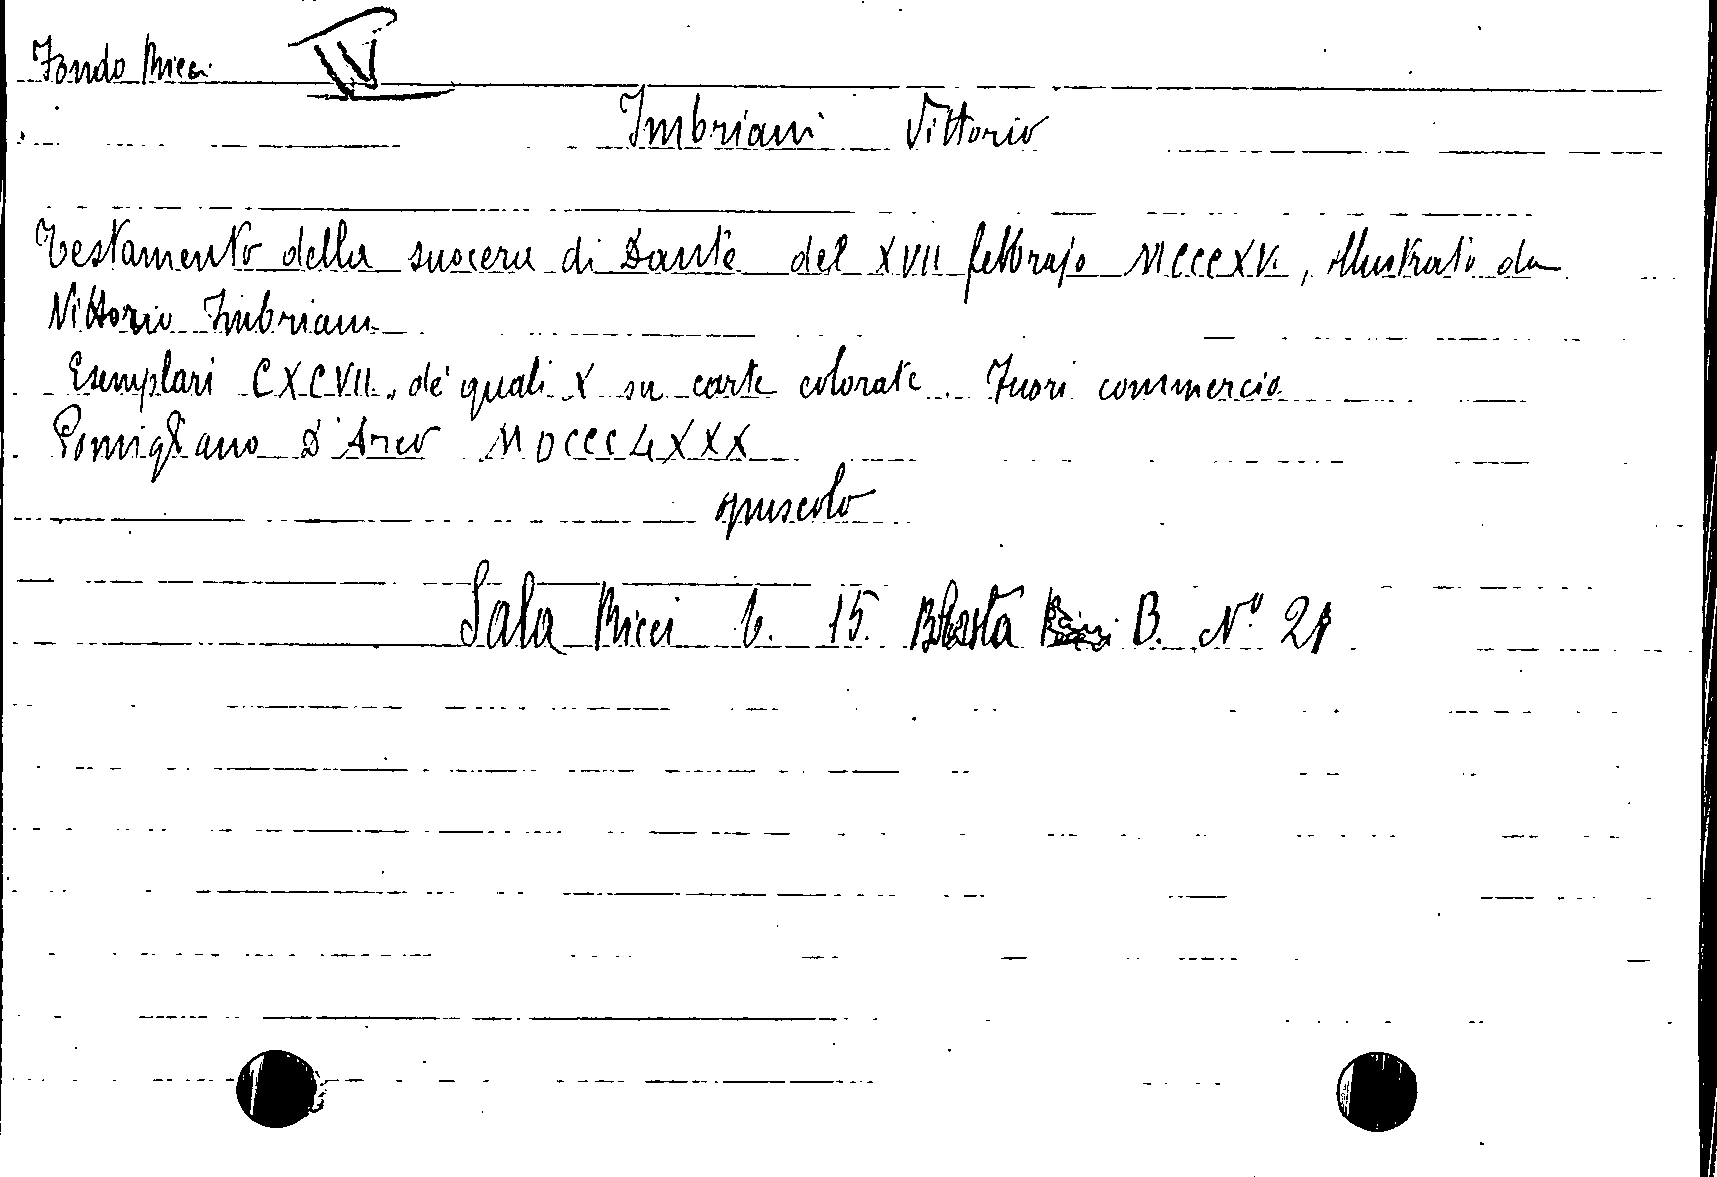 Fondo Ricci IV
Imbriani Vittorio
Testamento della suocera di Dante del XVII febbrajo MCCCXV, illustrato da
Vittorio Imbriani
Esemplari CXCVII, de' quali X su carte colorate. Fuori commercio
Pomigliano D'Arco MDCCCLXXX
opuscolo
Sala Ricci 6. 15. Busta B. Nº 21